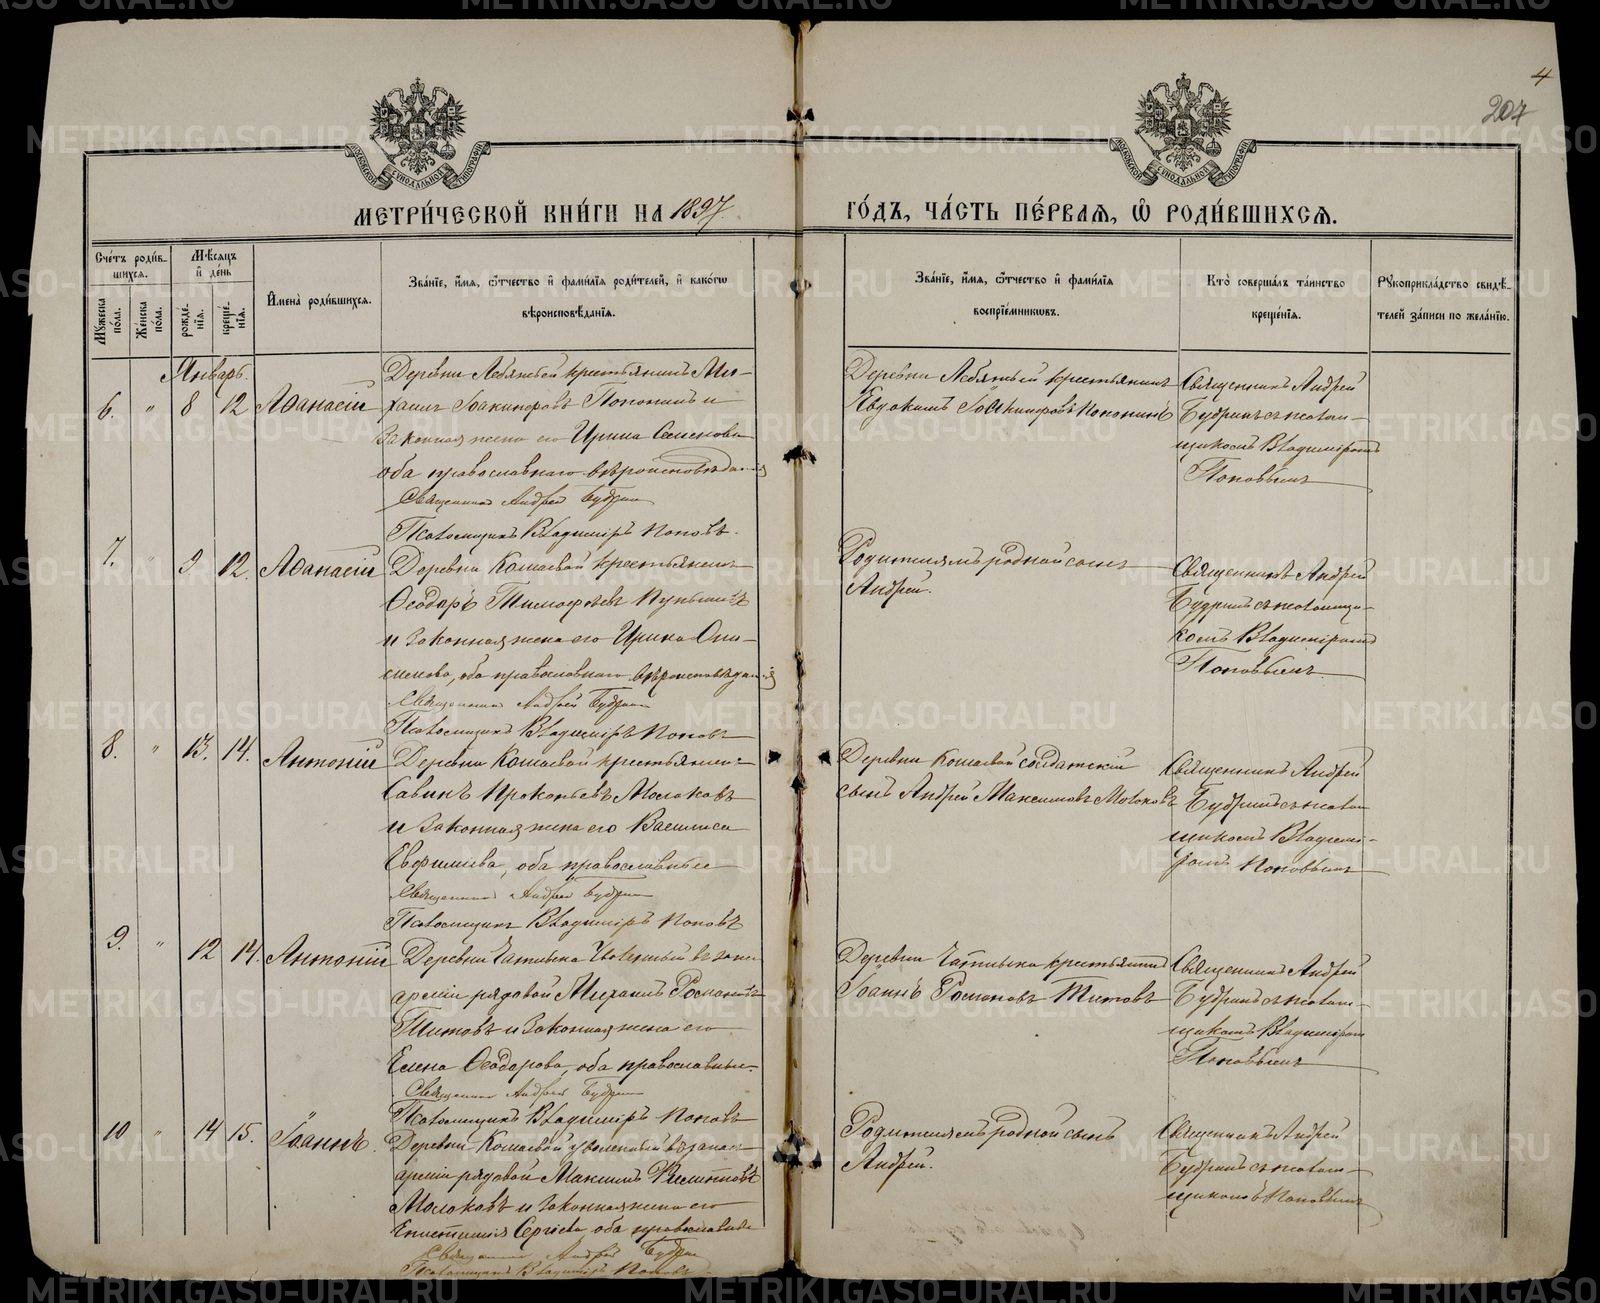 4
207
МЕТРИ́ЧЕСКОЙ КНИ́ГИ НА 1897
ГО́ДЪ, ЧА́СТЬ ПЕ́РВАЯ, Ѡ РОДИ́ВШИХСЯ.
Сче́тъ роди́в-
шихся.
Мꙋжеска по́ла.
Же́нска по́ла.
Мѣ́сяцъ
и҆ де́нь
рожде́-
нїя.
креще́-
нїя.
И҆мена̀ роди́вшихся.
Зва́нїе, и҆́мя, ѻ҆́тчество и҆ фами́лїя роди́телей, и҆ како́гѡ
вѣроисповѣ́данїя.
Зва́нїе, и҆́мя, ѻ҆́тчество и҆ фами́лїя
воспрїе́мникѡвъ.
Кто̀ соверша́лъ та́инство
креще́нїя.
Рꙋкоприкла́дство свидѣ́-
телей за́писи по жела́нїю.
Январь.
6. " 8 12 Аѳанасій
Деревни Лебяжьей крестьянинъ Ми-
хаилъ Іоакинфовъ Попонинъ и
законная жена его Ирина Семенова
оба православнаго вѣроисповѣданія
Священникъ Андрей Будринъ
Псаломщикъ Владиміръ Поповъ.
Деревни Лебяжьей крестьянинъ
Евдокимъ Іоакинфовъ Попонинъ
Священникъ Андрей
Будринъ съ псалом-
щикомъ Владиміромъ
Поповымъ
7. " 9 12. Аѳанасій
Деревни Кошаевой крестьянинъ
Ѳеодоръ Тимофѣевъ
и законная жена его Ирина Они-
симова, оба православнаго вѣроисповѣданія
Священникъ Андрей Будринъ
Псаломщикъ Владиміръ Поповъ
Родителямъ родной сынъ
Андрей.
Священникъ Андрей
Будринъ съ псаломщи-
комъ Владиміромъ
Поповымъ
8. " 13. 14. Антоній
Деревни Кошаевой крестьянинъ
Савинъ Прокопьевъ Молоковъ
и законная жена его Василиса
Евфимиева, оба православные
Священникъ Андрей Будринъ
Псаломщикъ Владиміръ Поповъ
Деревни Кошаевой солдатскій
сынъ Андрей Максимовъ Молоковъ
Священникъ Андрей
Будринъ съ псалом
щикомъ Владимі-
ромъ Поповымъ
9. " 12 14. Антоній
Деревни уволенный въ запас
арміи рядовой Михаилъ Романовъ
Титовъ и законная жена его
Елена Ѳеодорова, оба православные
Священникъ Андрей Будринъ
Псаломщикъ Владиміръ Поповъ
Деревни крестьянинъ
Іоаннъ Романовъ Титовъ
Священникъ Андрей
Будринъ съ псалом-
щикомъ Владиміром
Поповымъ
10 " 14 15. Іоаннъ.
Деревни Кошаевой уволенный въ запас
арміи рядовой Максимъ Филипповъ
Молоковъ и законная жена его
Епистимія Сергіева, оба православные
Священникъ Андрей Будринъ
Псаломщикъ Владиміръ Поповъ
Родителямъ родной сынъ
Андрей.
Священникъ Андрей
Будринъ съ псалом-
щикомъ Поповымъ
METRIKI.GASO-URAL.RU